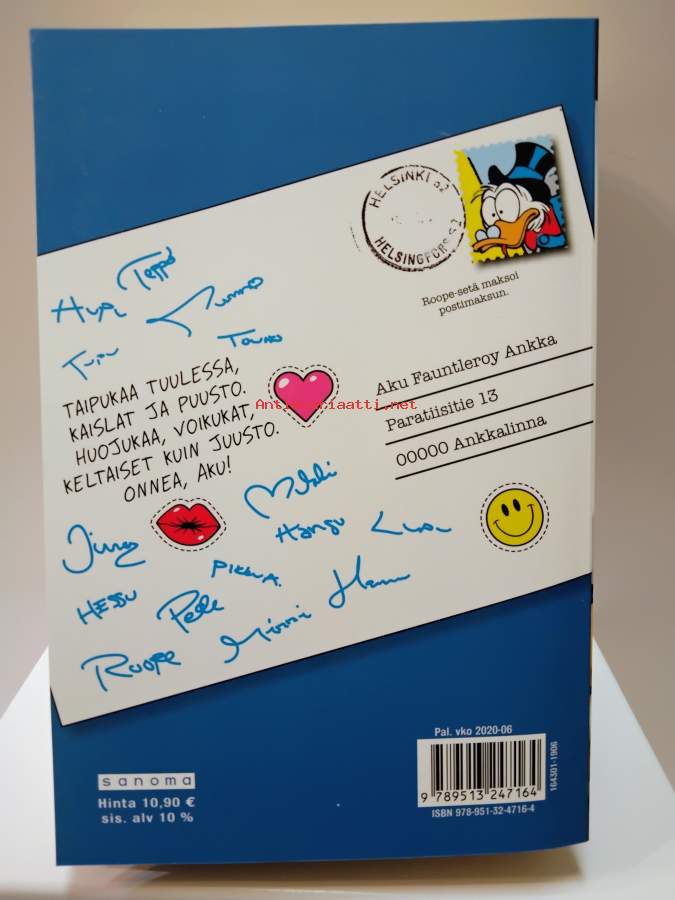 HELSINKI
HELSINGFORS
Roope-setä maksoi
postimaksun.
Teppo
Aku Fauntleroy Ankka
Paratiisitie 13
00000 Ankkalinna
Tupu
Touho
TAIPUKAA TUULESSA,
KAISLAT JA PUUSTO.
HUOJUKAA, VOIKUKAT,
KELTAISET KUIN JUUSTO.
ONNEA, AKU!
Antikvariaatti.net
Hansu
HESSU
Pelle
Roope
Minni
Pal. vko 2020-06
164301-1906
9 789513 247164
ISBN 978-951-32-4716-4
sanoma
Hinta 10,90 €
sis. alv 10 %